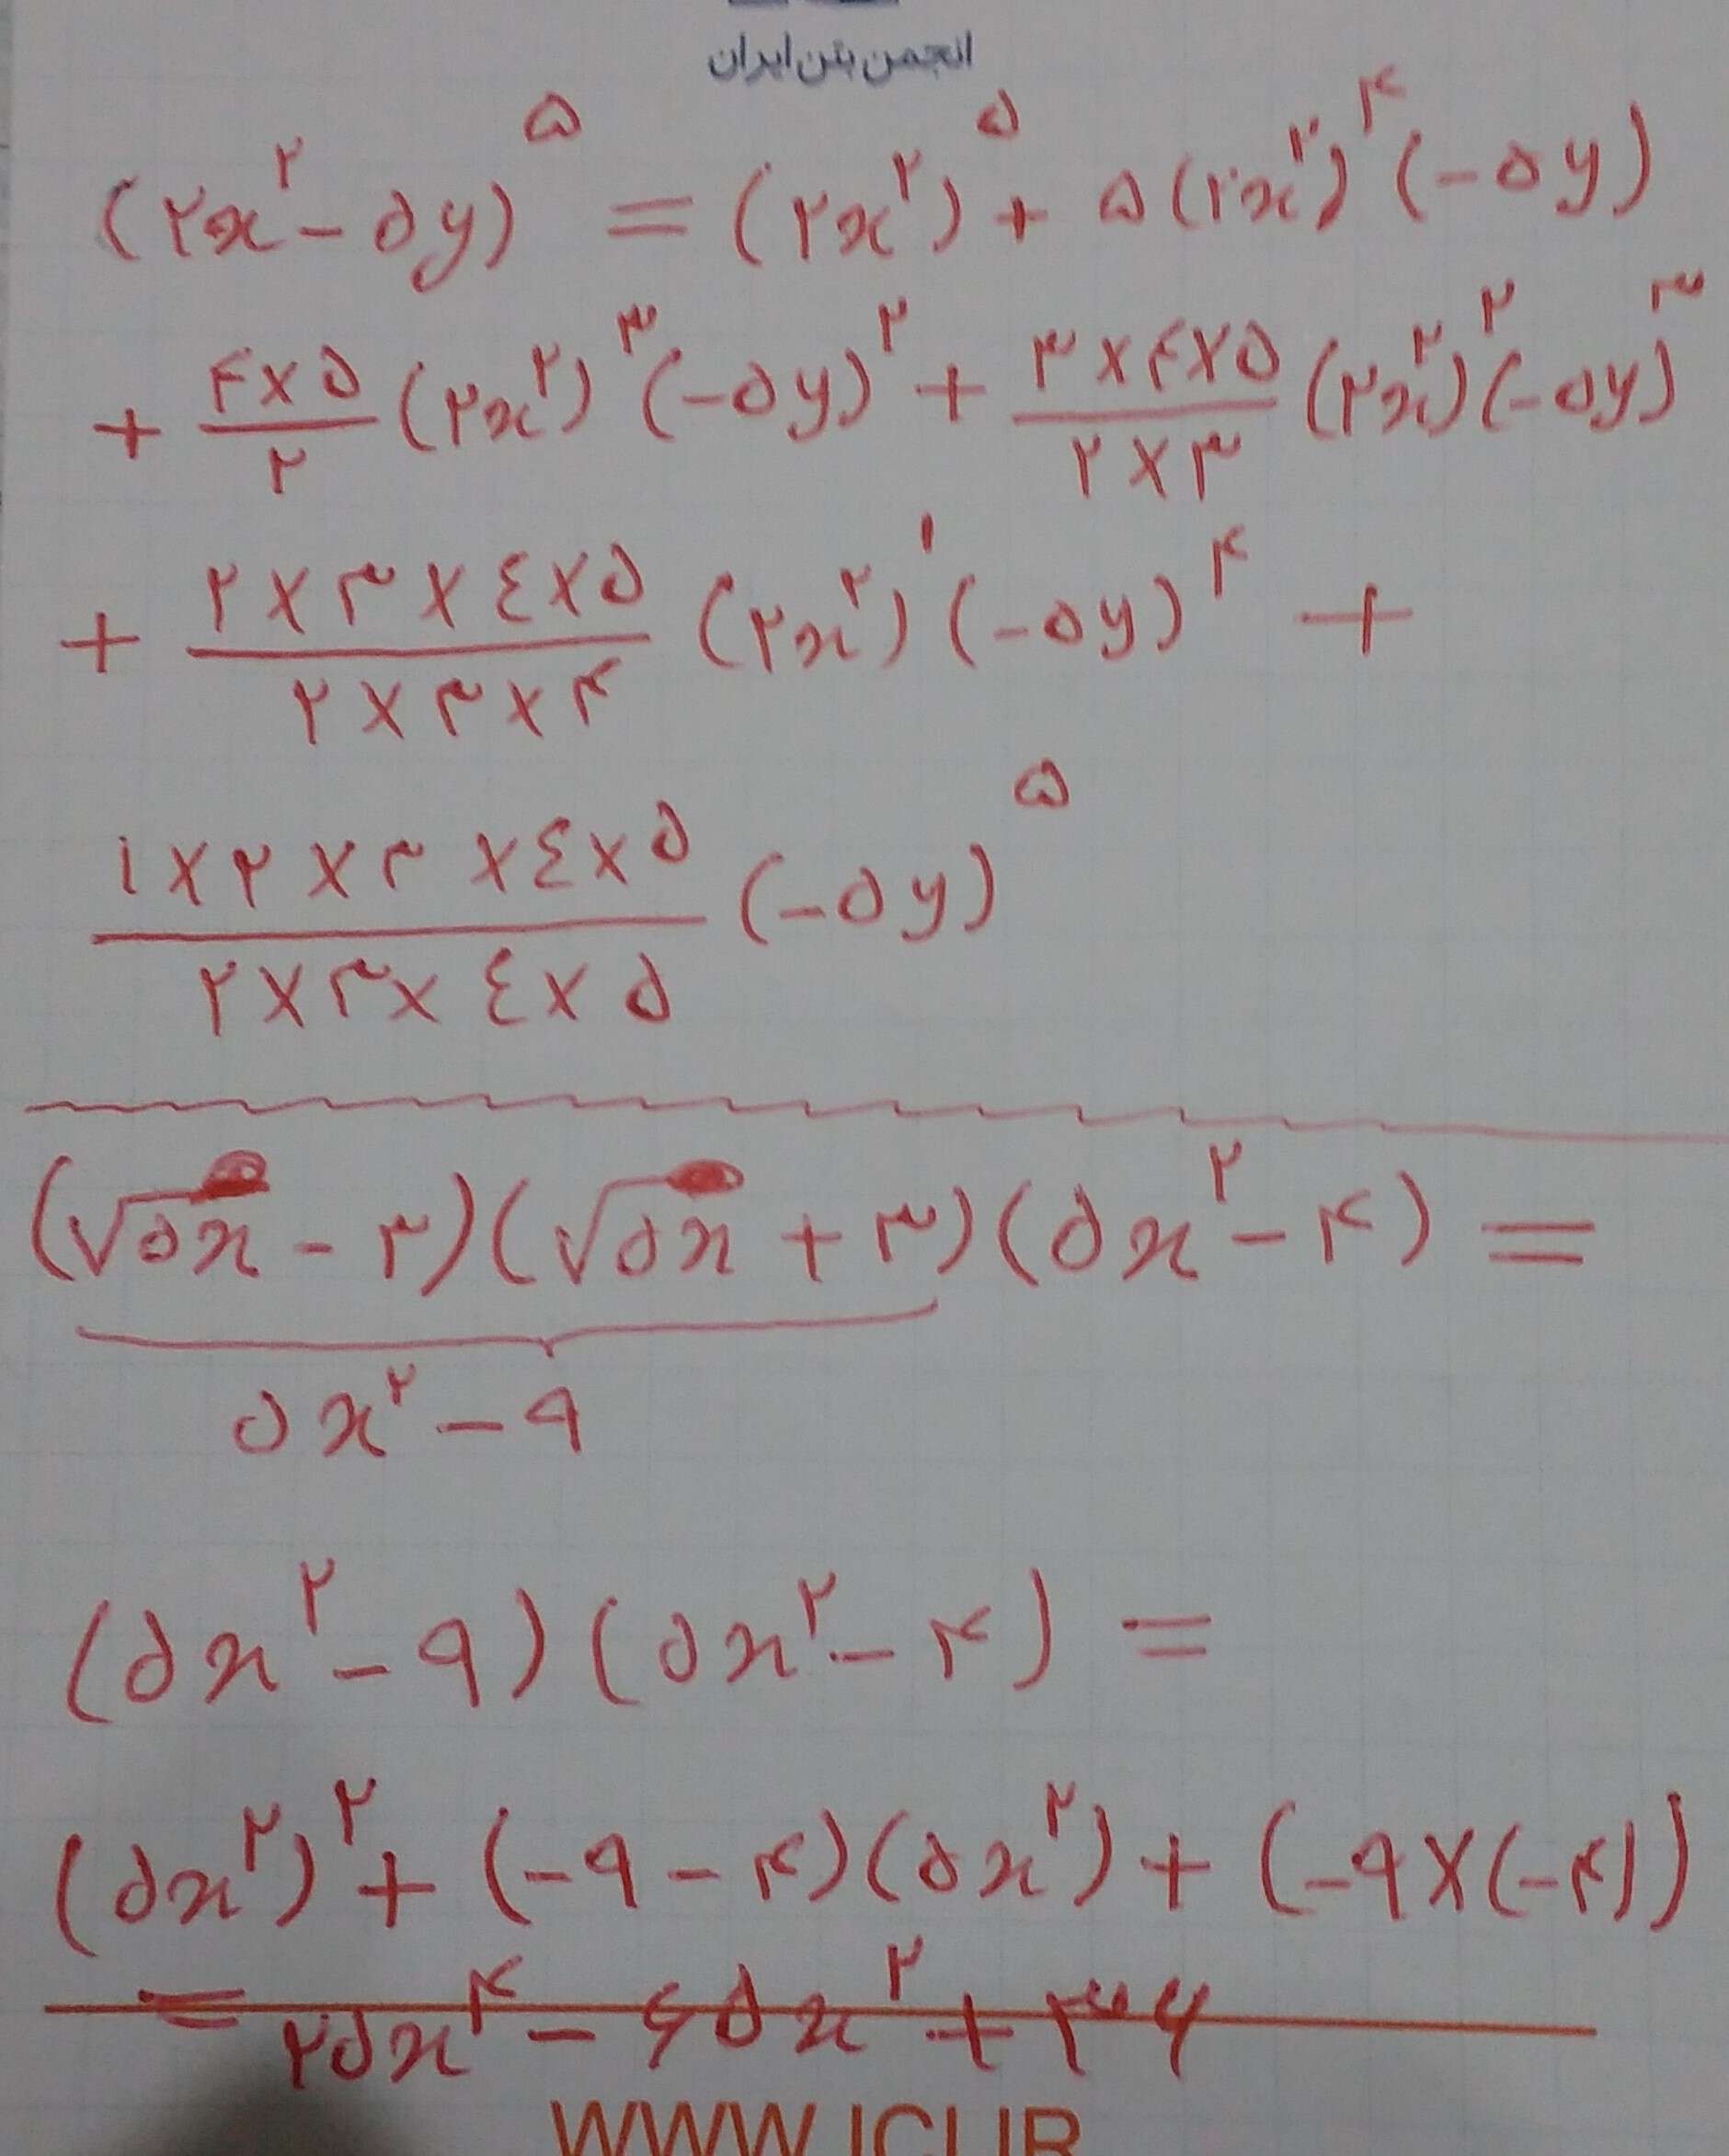 انجمن بتن ایران
(۲x² - ۵y)^۵ = (۲x²)^۵ + ۵(۲x²)^۴ (-۵y)
+ (۴×۵)/۲ (۲x²)^۳ (-۵y)^۲ + (۳×۴×۵)/(۲×۳) (۲x²)^۲ (-۵y)^۳
+ (۲×۳×٤×۵)/(۲×۳×۴) (۲x²)^۱ (-۵y)^۴ +
(۱×۲×۳×٤×۵)/(۲×۳×٤×۵) (-۵y)^۵
(√۵x - ۳)(√۵x + ۳)(۵x² - ۴) =
۵x² - ۹
(۵x² - ۹)(۵x² - ۴) =
(۵x²)² + (-۹ - ۴)(۵x²) + (-۹×(-۴))
= ۲۵x^۴ - ۶۵x² + ۳۶
WWW.ICI.IR